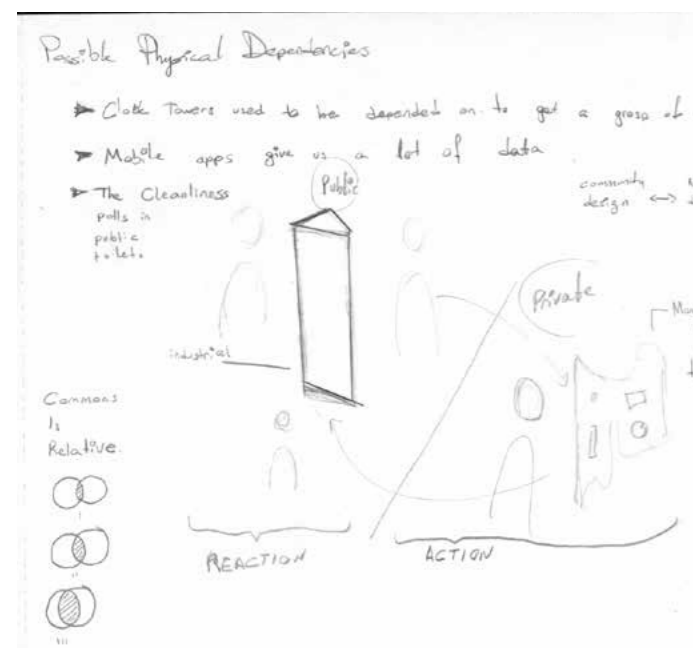 Possible Physical Dependencies
Clock Towers used to be depended on to get a grasp of
Mobile apps give us a lot of data
The Cleanliness
polls in
public
toilets
Public
community
design
Private
industrial
Commons
Is
Relative.
I
II
III
REACTION
ACTION